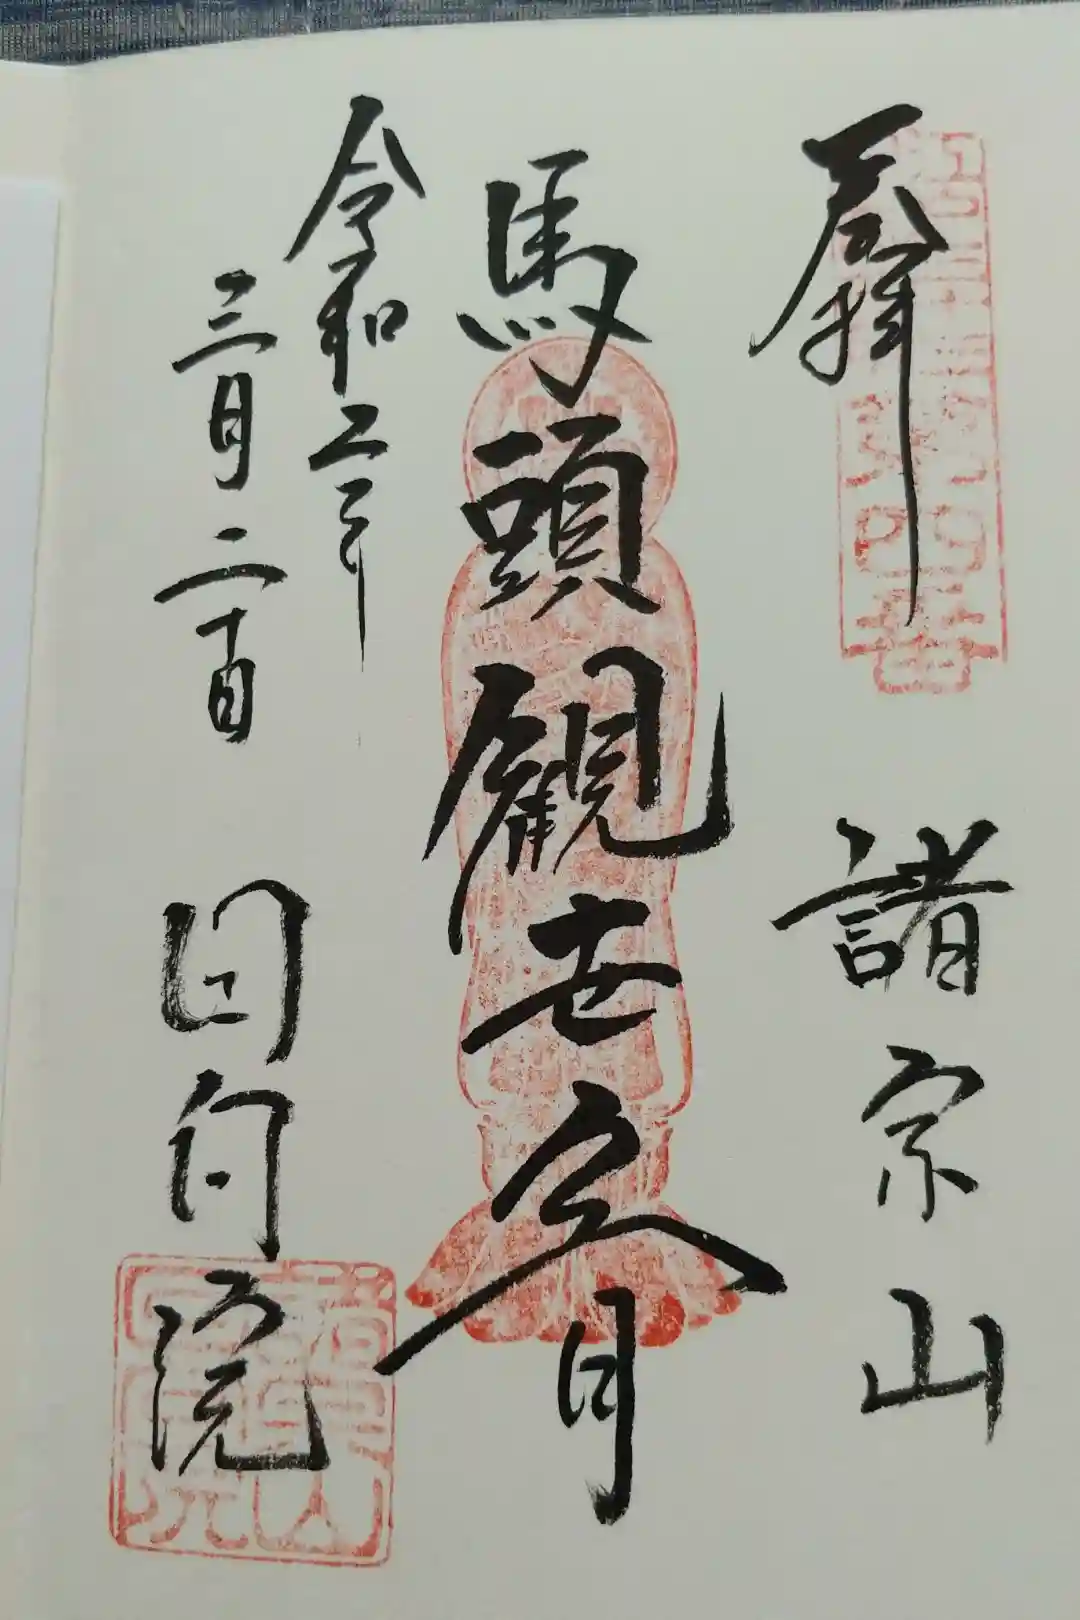 奉拝 諸宗山
馬頭観世音
令和二年
三月二十日 回向院